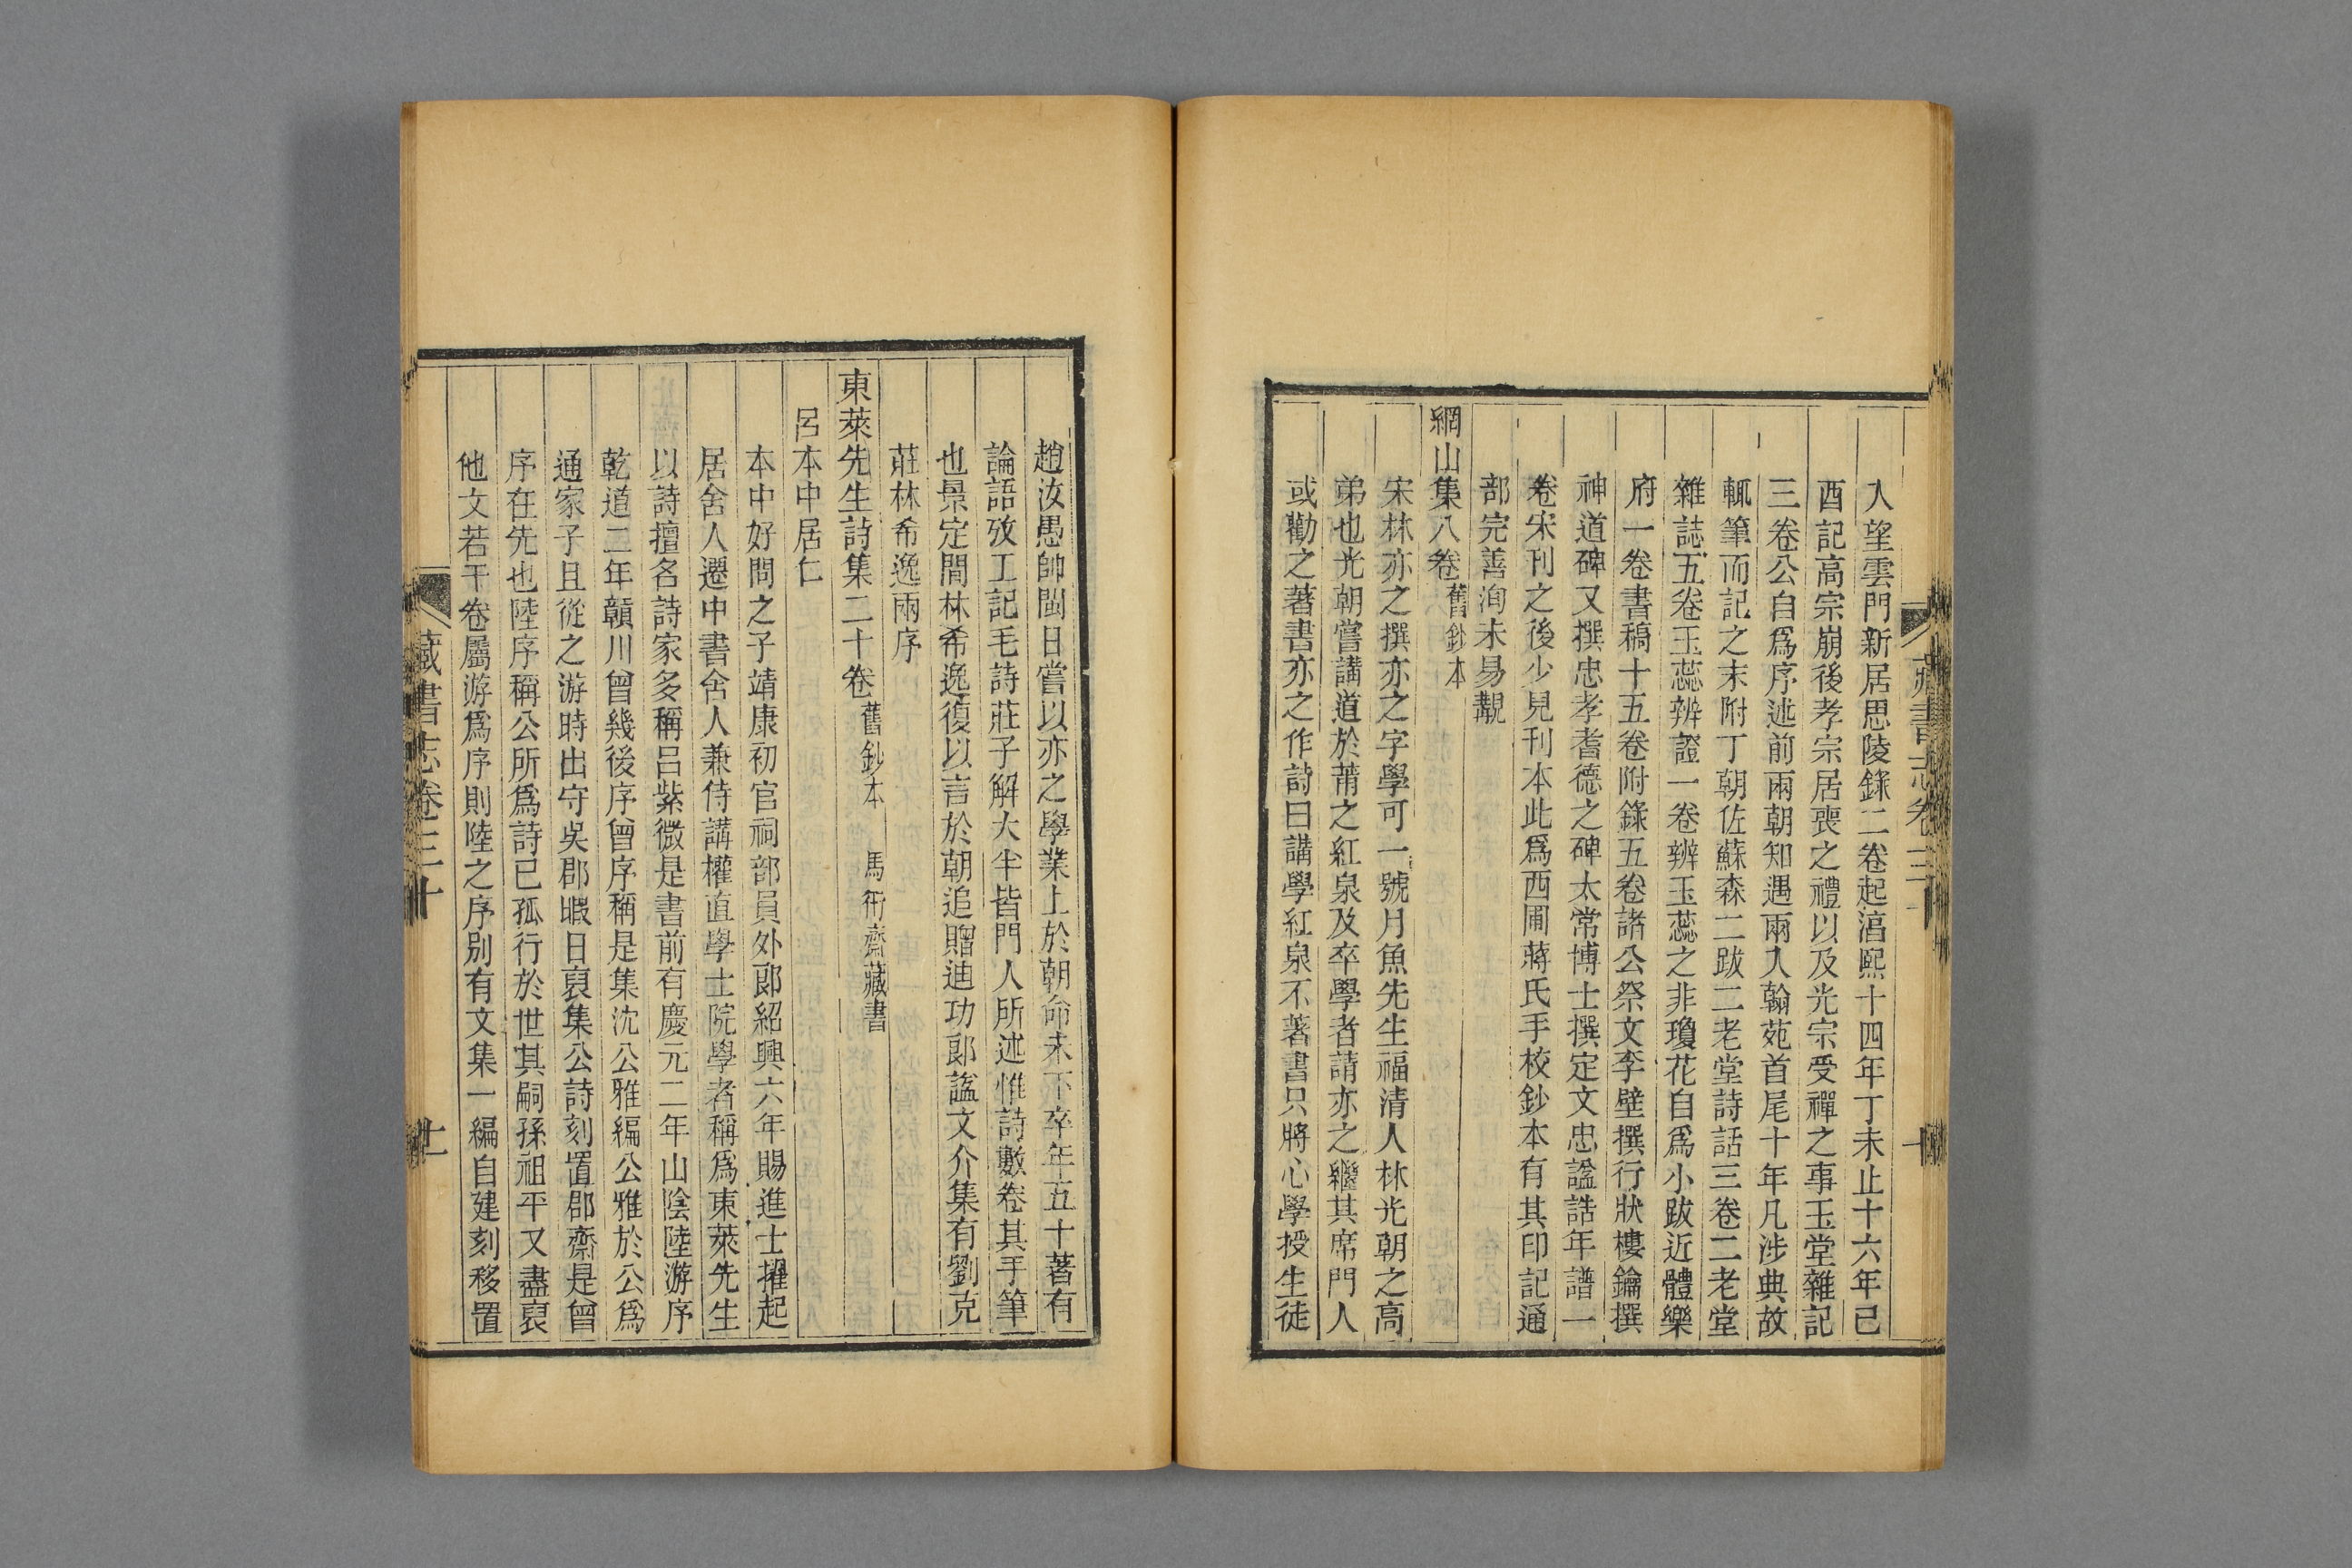 人望雲門新居思陵錄二卷起淳熙十四年丁未止十六年己
酉記高宗崩後孝宗居喪之禮以及光宗受禪之事玉堂雜記
三卷公自爲序述前兩朝知遇兩入翰苑首尾十年凡涉典故
輒筆而記之末附丁朝佐蘇森二跋二老堂詩話三卷二老堂
雜誌五卷玉蕊辨證一卷辨玉蕊之非瓊花自爲小跋近體樂
府一卷書稿十五卷附錄五卷諸公祭文李壁撰行狀樓鑰撰
神道碑又撰忠孝耆德之碑太常博士撰定文忠諡誥年譜一
卷宋刊之後少見刊本此爲西圃蔣氏手校鈔本有其印記通
部完善洵未易覯
網山集八卷 舊鈔本
宋林亦之撰亦之字學可一號月魚先生福清人林光朝之高
弟也光朝嘗講道於莆之紅泉及卒學者請亦之繼其席門人
或勸之著書亦之作詩曰講學紅泉不著書只將心學授生徒
趙汝愚帥閩日嘗以亦之學業上於朝命未下卒年五十著有
論語攷工記毛詩莊子解大半皆門人所述惟詩數卷其手筆
也景定閒林希逸復以言於朝追贈迪功郞諡文介集有劉克
莊林希逸兩序
東萊先生詩集二十卷 舊鈔本 馬衎齋藏書
呂本中居仁
本中好問之子靖康初官祠部員外郞紹興六年賜進士擢起
居舍人遷中書舍人兼侍講權直學士院學者稱爲東萊先生
以詩擅名詩家多稱呂紫微是書前有慶元二年山陰陸游序
乾道二年贛川曾幾後序曾序稱是集沈公雅編公雅於公爲
通家子且從之游時出守吳郡暇日裒集公詩刻置郡齋是曾
序在先也陸序稱公所爲詩已孤行於世其嗣孫祖平又盡裒
他文若干卷屬游爲序則陸之序別有文集一編自建刻移置
藏書志卷三十
十一